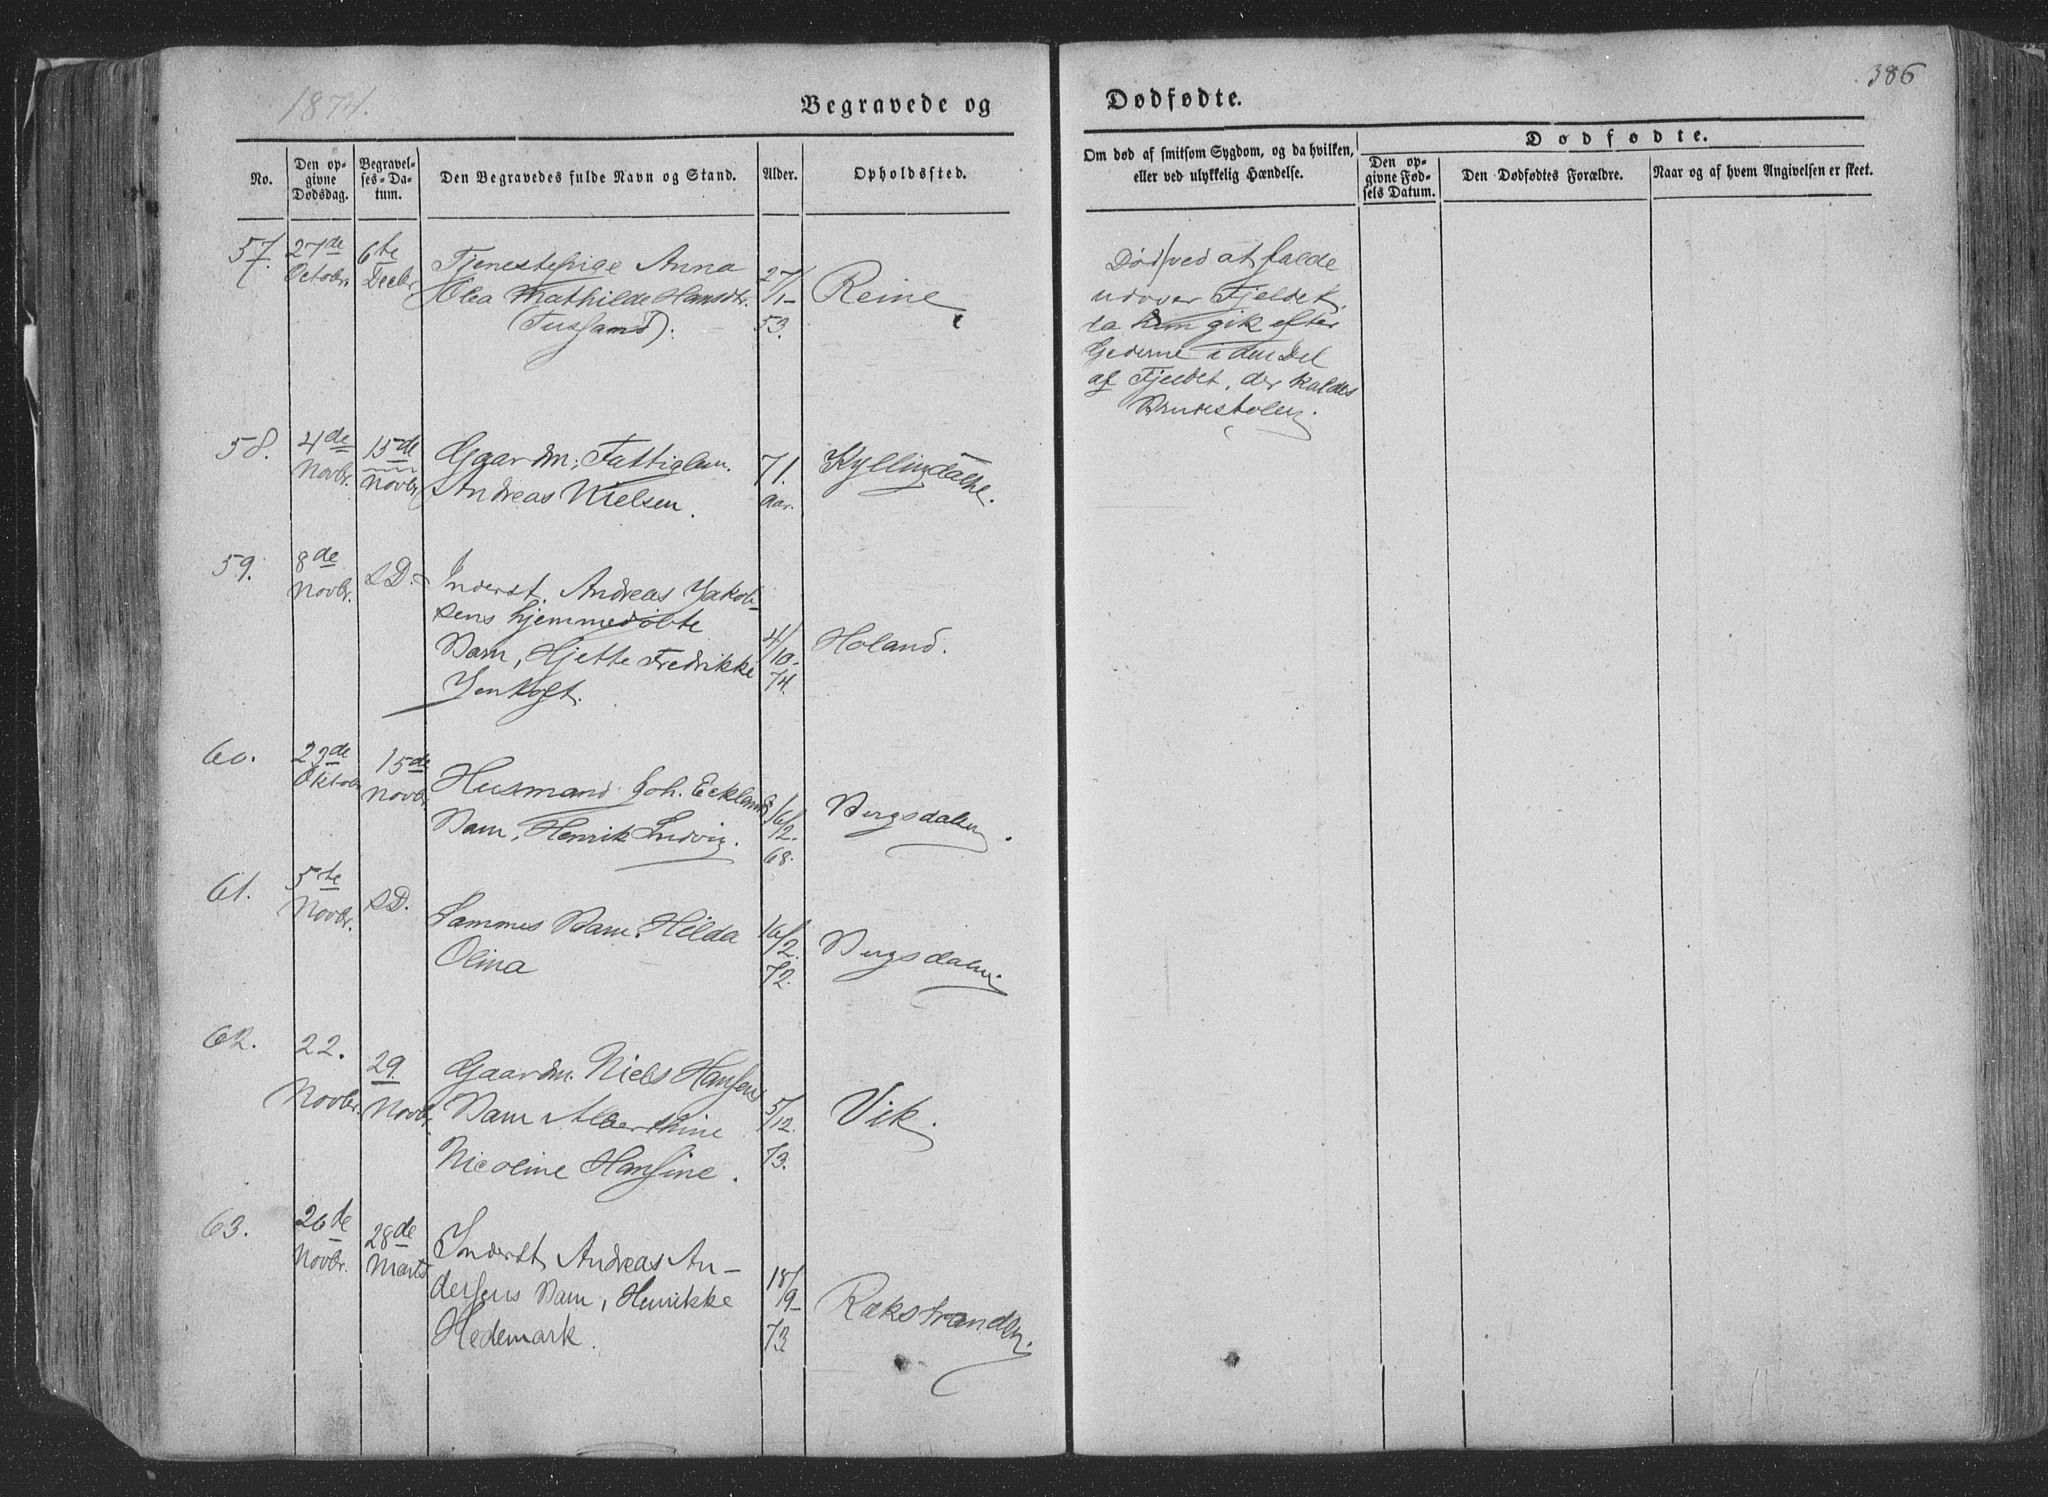 1874.
Begravede og
Dødfødte.
386
No.
Den op-
givne
Dødsdag.
Begravel-
ses-Da-
tum.
Den Begravedes fulde Navn og Stand.
Alder.
Opholdssted.
Om død af smitsom Sygdom, og da hvilken,
eller ved ulykkelig Hændelse.
Dødfødte.
Den op-
givne Fød-
sels Datum.
Den Dødfødtes Forældre.
Naar og af hvem Angivelsen er skeet.
57.
27de
Octobr.
6te
Decbr
Tjenestepige Anna
Olea Mathilde Hansdtr.
27/1-
53.
Reine
Død ved at falde
udover Fjeldet,
da hun gik efter
Gederne i den Del
af Fjeldet, der kaldes
Brudestolen.
58.
4de
Novbr.
15de
Novbr
Gaardm., Fattiglem.
Andreas Nielsen.
71.
aar.
59.
8de
Novbr.
S.D.
Inderst. Andreas Jakob-
sens hjemmedøbte
Barn, Hjette Fredrikke
4/10-
74.
Holand.
60.
23de
Oktobr
15de
Novbr.
Husmand Joh. Ecklands
Barn, Henrik Ludvig.
6/12.
68.
Bergsdalen.
61.
5te
Novbr.
S.D.
Sammes Barn, Hilda
Olina
16/2.
72.
Bergsdalen
62.
22.
Novbr.
29.
Novbr.
Gaardm. Niels Hansens
Barn Alberthine
Nicoline Hansine.
5/12.
73.
Vik.
63.
26de
Novbr.
28de
Marts
Inderst. Andreas An-
dersens Barn, Henrikke
Hedemark.
18/9-
73
Rækstranden.